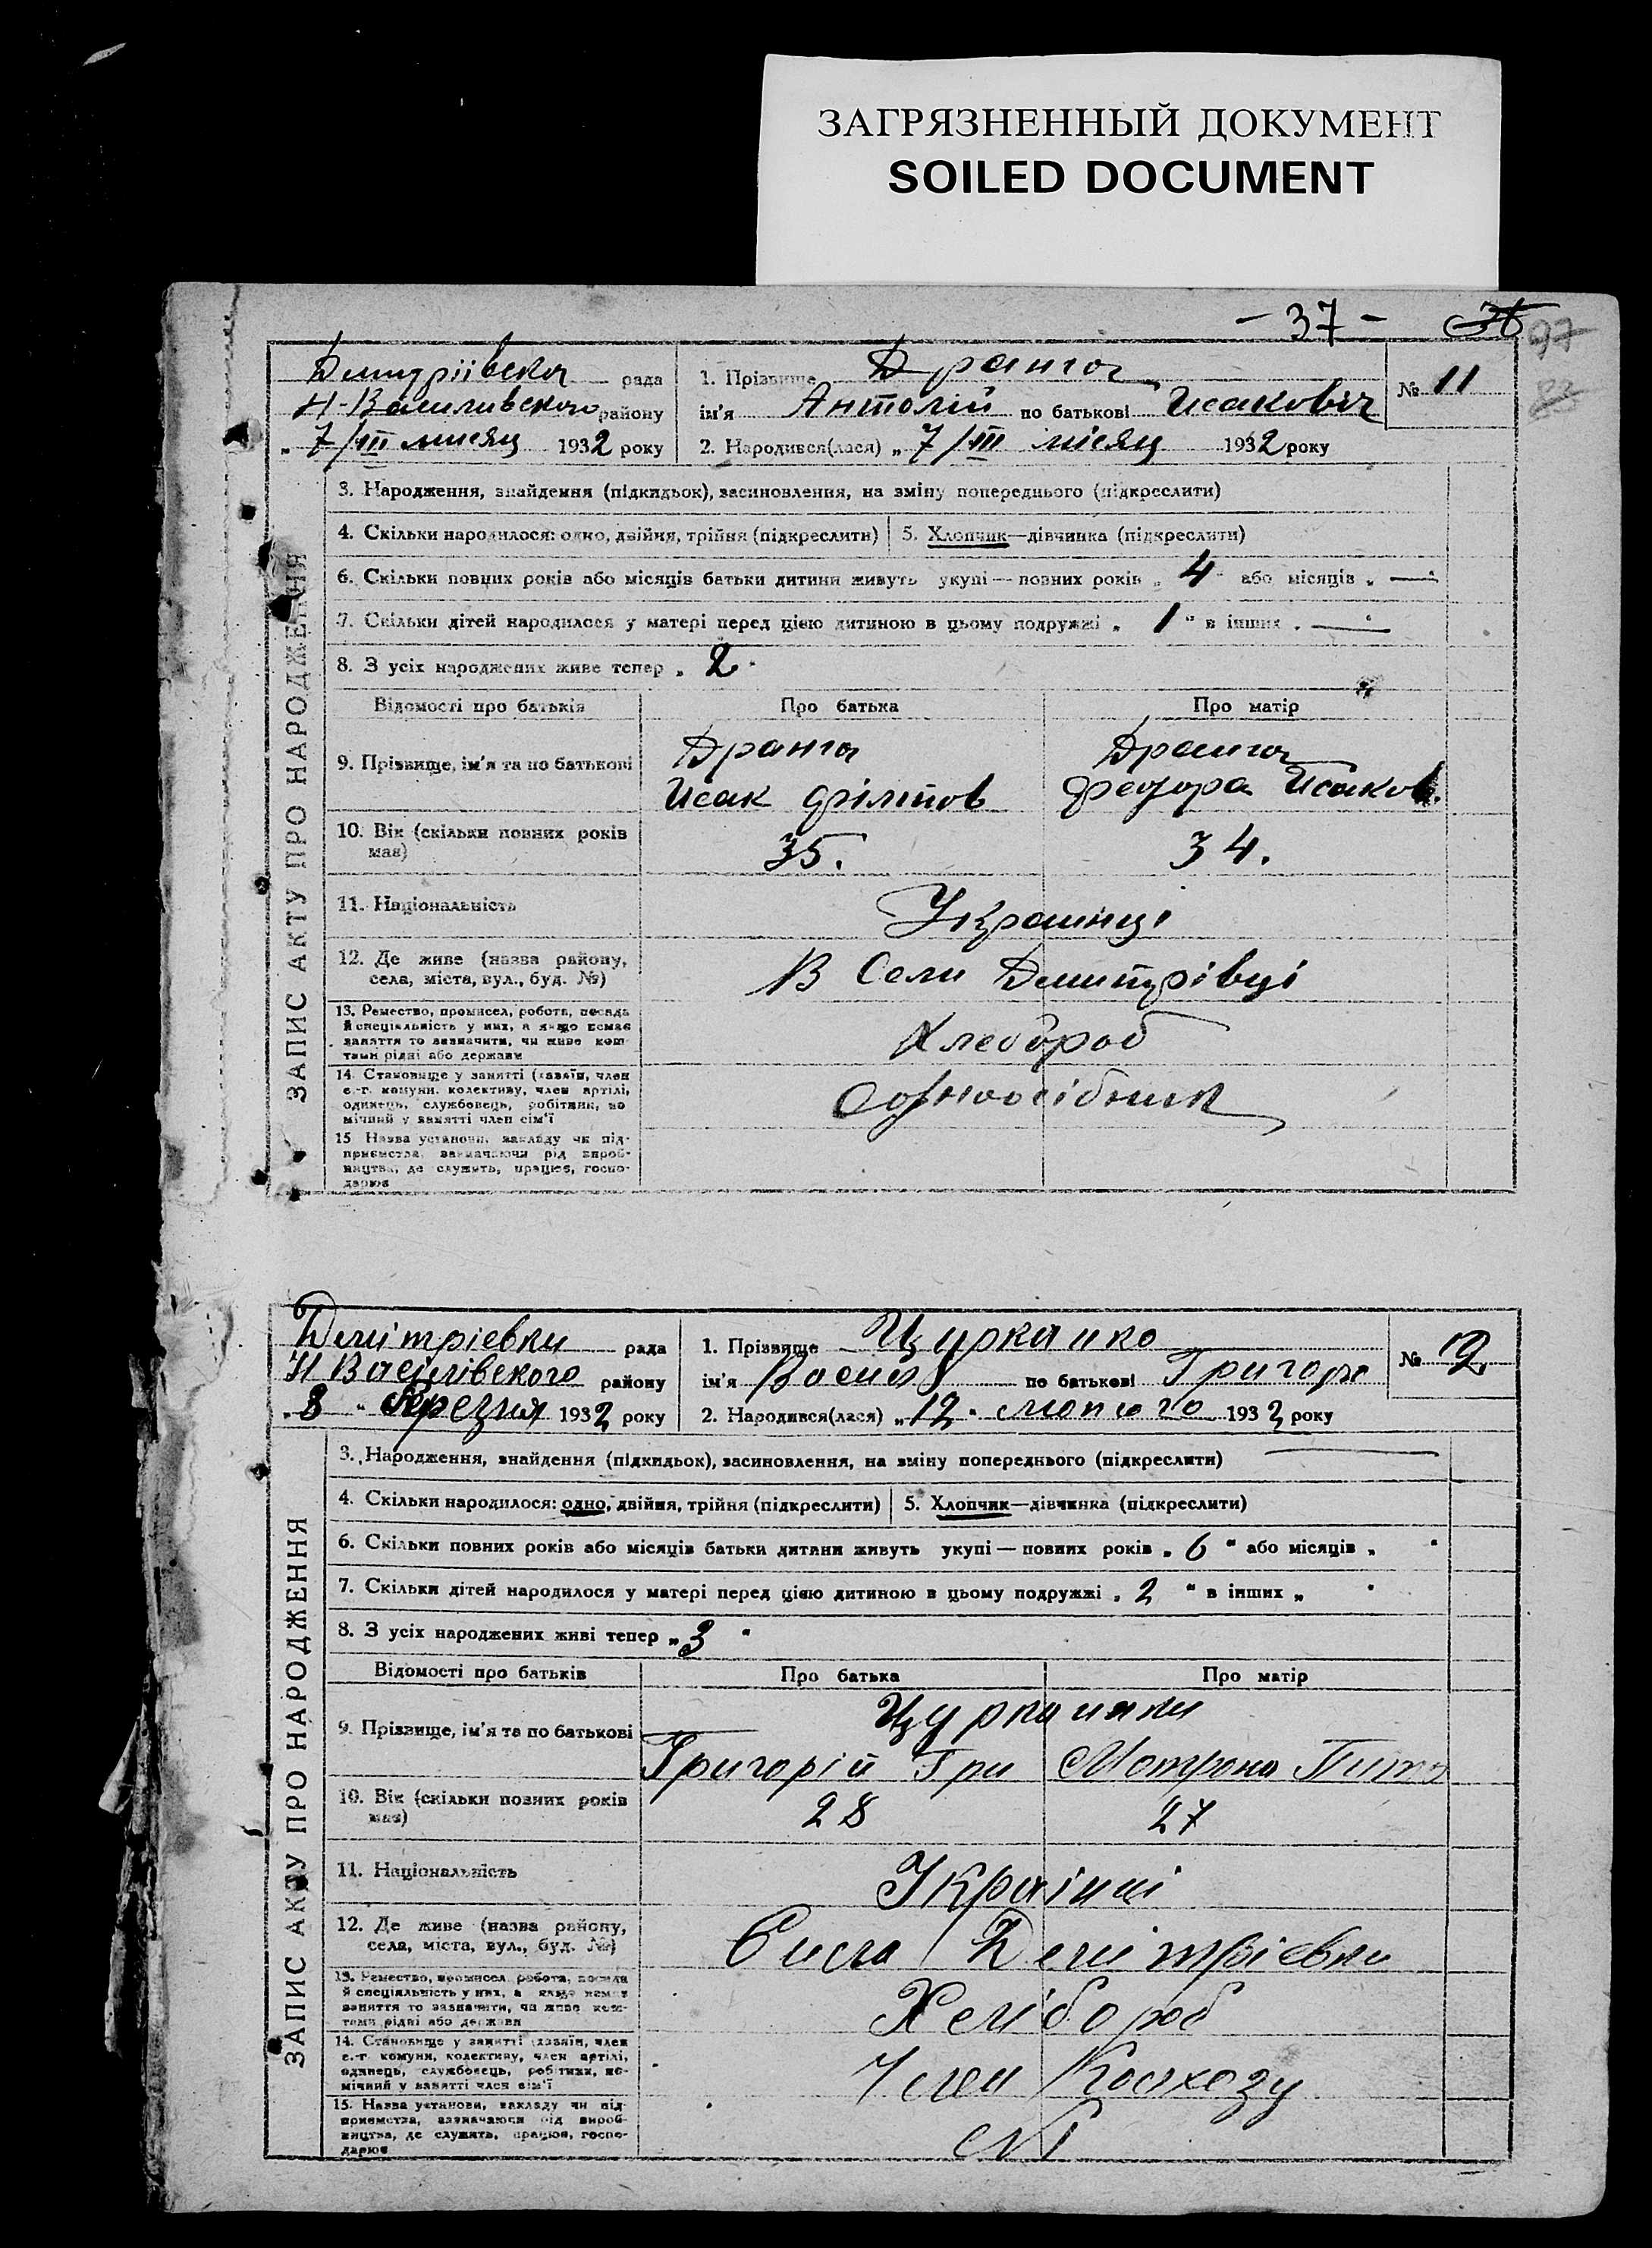 ЗАГРЯЗНЕННЫЙ ДОКУМЕНТ
SOILED DOCUMENT
- 37 -
97
ЗАПИС АКТУ ПРО НАРОДЖЕННЯ
Дмитріівска рада
Н-Василивского району
„ 7/III мисяц 1932 року
1. Прізвище Дранга
ім'я Антолій по батькові Исакович
2. Народився(лася) „ 7/III місяц 1932 року
№ 11
3. Народження, знайдення (підкидьок), засиновлення, на зміну попереднього (підкреслити)
4. Скільки народилося: одно, двійня, трійня (підкреслити) 5. Хлопчик—дівчинка (підкреслити)
6. Скільки повних років або місяців батьки дитини живуть укупі — повних років „ 4 або місяців „ —
7. Скільки дітей народилося у матері перед цією дитиною в цьому подружжі „ 1 " в інших „ —
8. З усіх народжених живе тепер „ 2
Відомості про батьків Про батька Про матір
9. Прізвище, ім'я та по батькові
Дранга Дранга
Исак Філипов Феодора Исаков.
10. Вік (скільки повних років
має)
35. 34.
11. Національність
Украинці
12. Де живе (назва району,
села, міста, вул., буд. №)
В Сели Дмитрівці
13. Ремество, промисел, робота, посада
й спеціяльність у них, а якщо немає
заняття то зазначити, чи живе кош-
тами рідні або держави
Хлебороб
14. Становище у занятті (хазяїн, член
с.-г. комуни, колективу, член артілі,
одинець, службовець, робітник, по
мічний у занятті член сім'ї
Одноосібник
15. Назва установи, закладу чи під-
приємства, зазначаючи рід вироб-
ництва, де служить, працює, госпо-
дарює
ЗАПИС АКТУ ПРО НАРОДЖЕННЯ
Демітріевки рада
Н Васілівского району
„ 8 " березня 1932 року
1. Прізвище Цурканко
ім'я Василь по батькові Григор
2. Народився(лася) „ 12 " лютого 1932 року
№ 12
3. Народження, знайдення (підкидьок), засиновлення, на зміну попереднього (підкреслити)
4. Скільки народилося: одно, двійня, трійня (підкреслити) 5. Хлопчик—дівчинка (підкреслити)
6. Скільки повних років або місяців батьки дитини живуть укупі — повних років „ 6 " або місяців „ "
7. Скільки дітей народилося у матері перед цією дитиною в цьому подружжі „ 2 " в інших „ "
8. З усіх народжених живі тепер „ 3 "
Відомості про батьків Про батька Про матір
9. Прізвище, ім'я та по батькові
Цурканки
Григорій Гри Мотрона
10. Вік (скільки повних років
має)
28 27
11. Національність
Украінці
12. Де живе (назва району,
села, міста, вул., буд. №)
Сила Демітріевки
13. Ремество, промисел, робота, посада
й спеціяльність у них, а якщо немає
заняття то зазначити, чи живе кош-
тами рідні або держави
Хелібороб
14. Становище у занятті (хазяїн, член
с.-г. комуни, колективу, член артілі,
одинець, службовець, робітник, по-
мічний у занятті член сім'ї
Член Колхозу
15. Назва установи, закладу чи під-
приємства, зазначаючи рід вироб-
ництва, де служить, працює, госпо-
дарює